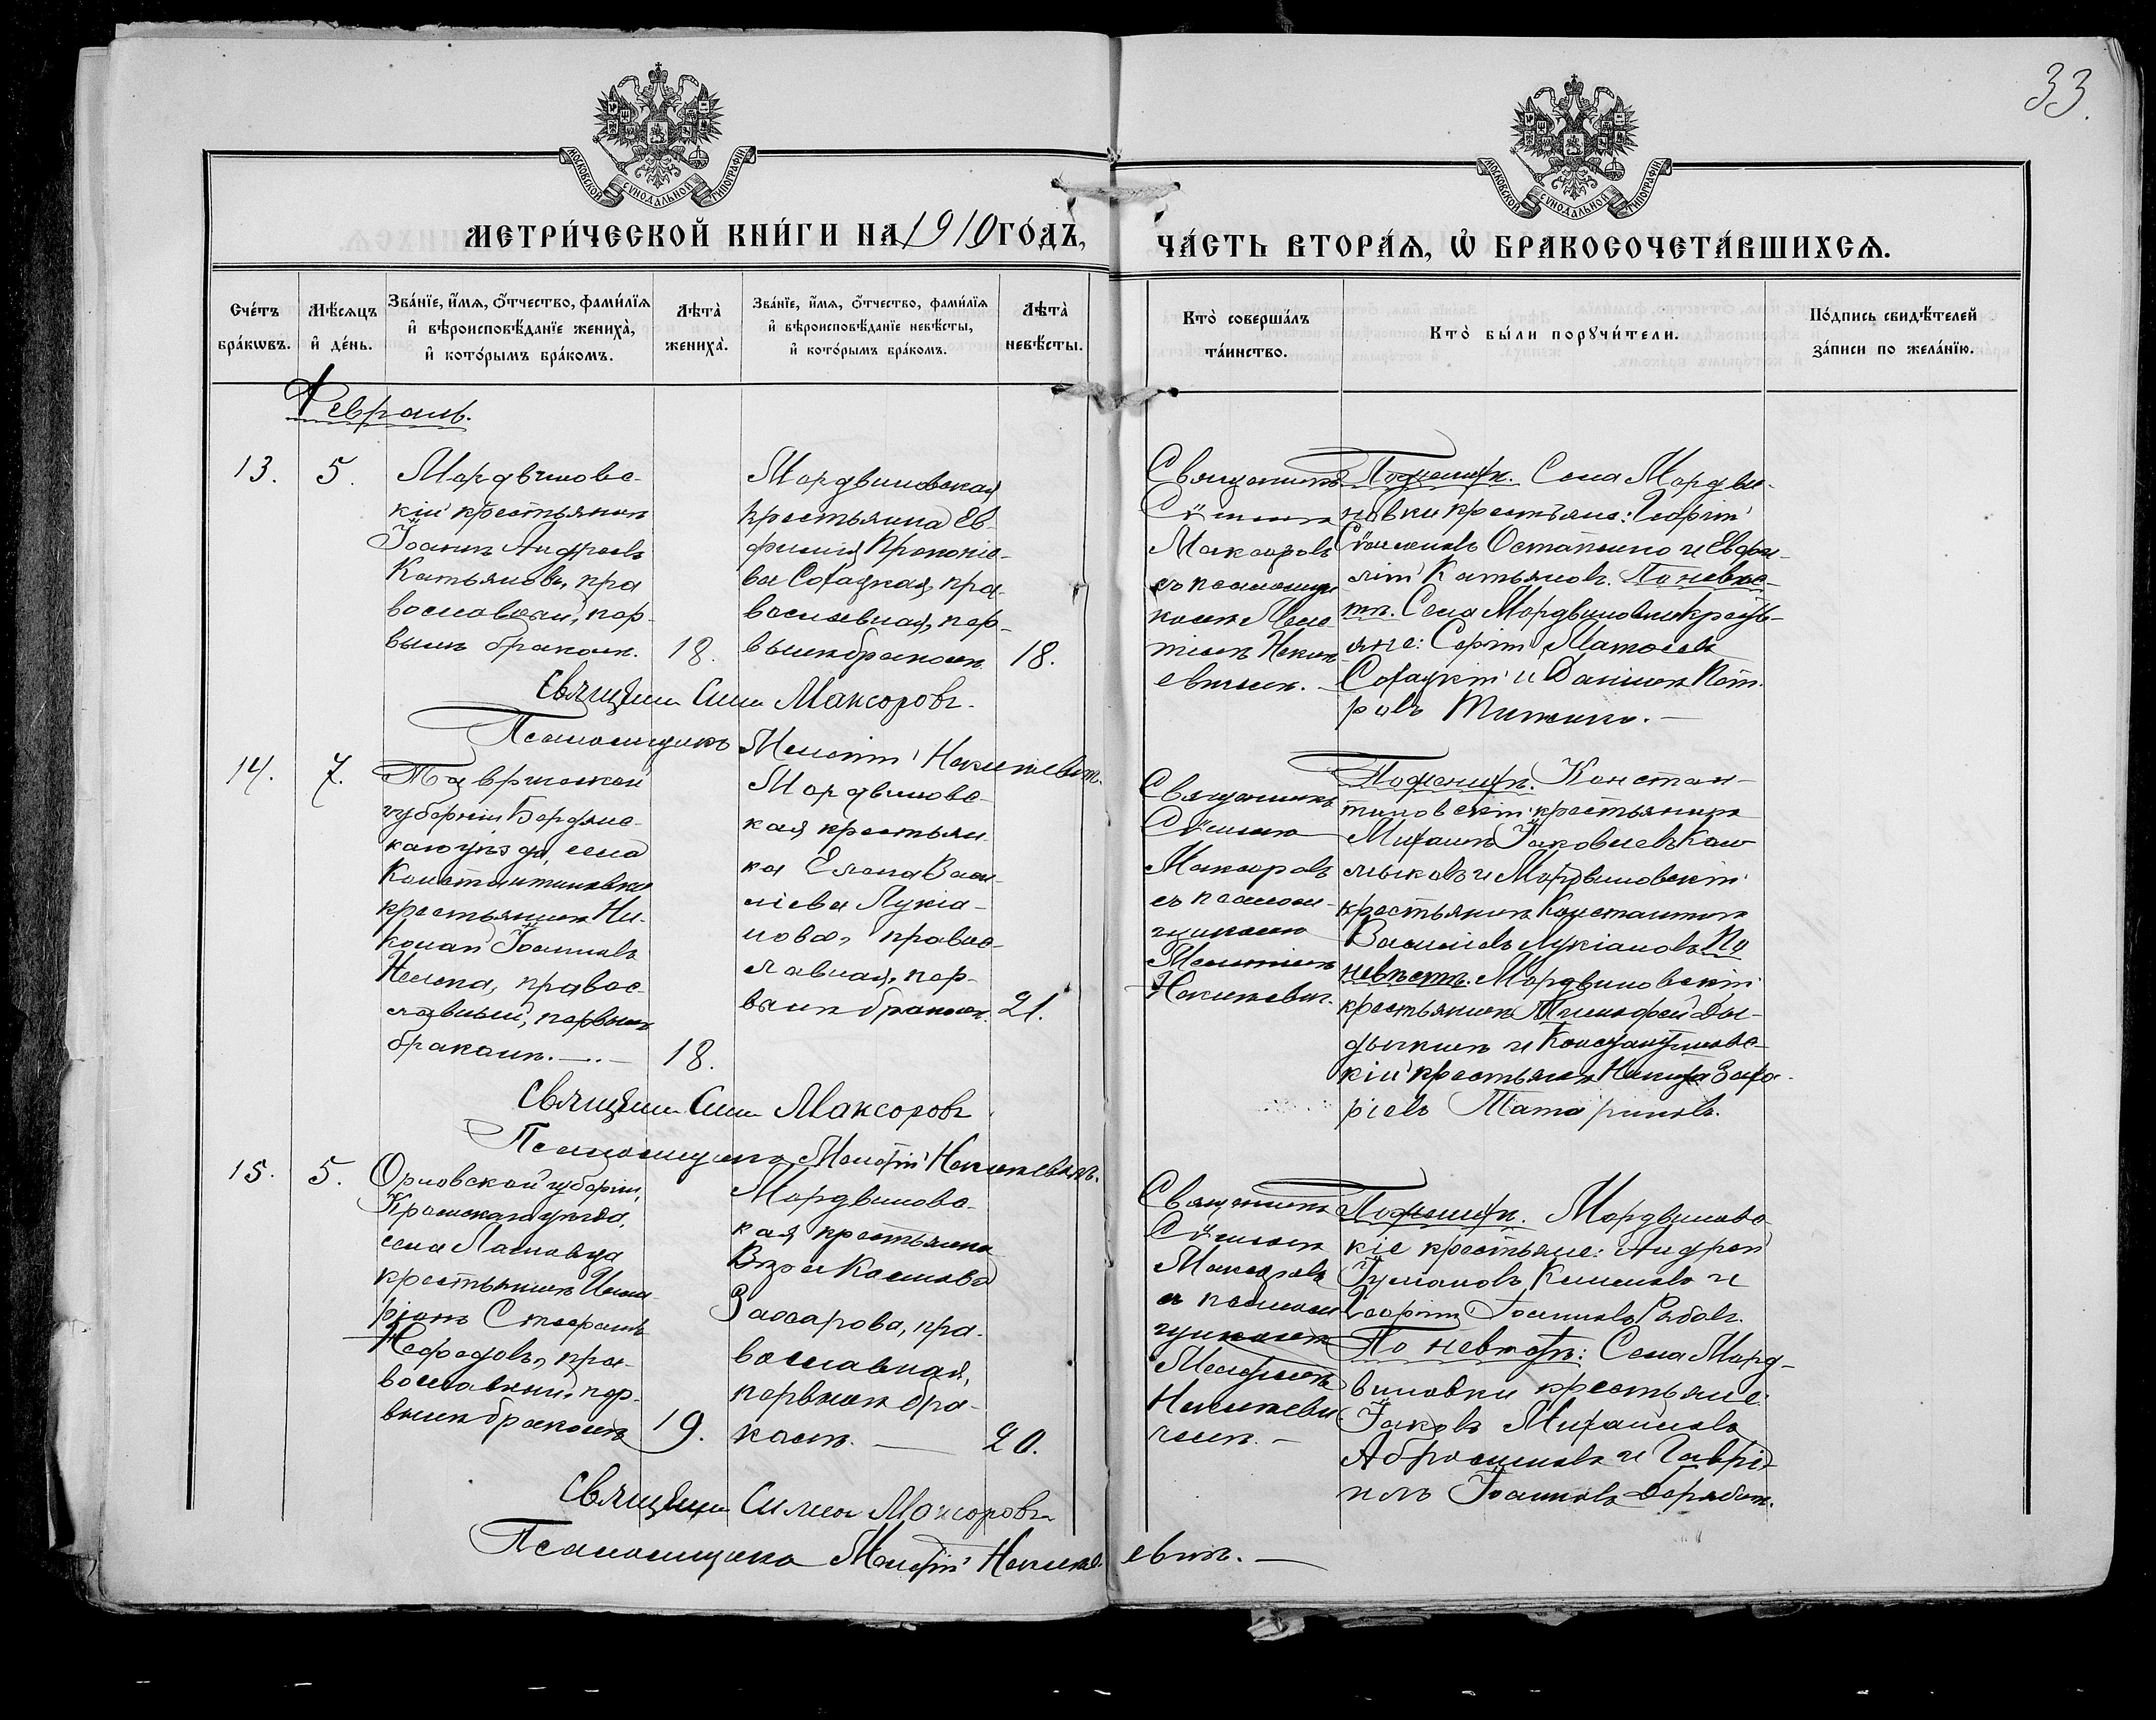 33.
МОСКОВСКОЙ СУНОДАЛЬНОЙ ТИПОГРАФІИ
МОСКОВСКОЙ СУНОДАЛЬНОЙ ТИПОГРАФІИ
МЕТРИ́ЧЕСКОЙ КНИ́ГИ НА 1910 ГО́ДЪ,
ЧА́СТЬ ВТОРА́Ѧ, Ѡ҆ БРАКОСОЧЕТА́ВШИХСѦ.
Сче́тъ бра́кѡвъ.
Мѣ́сѧцъ и҆ де́нь.
Зва́нїе, и҆́мѧ, ѻ҆́тчество, фами́лїѧ
и҆ вѣроисповѣ́данїе жениха̀,
и҆ кото́рымъ бра́комъ.
Лѣта̀ жениха̀.
Зва́нїе, и҆́мѧ, ѻ҆́тчество, фами́лїѧ
и҆ вѣроисповѣ́данїе невѣ́сты,
и҆ кото́рымъ бра́комъ.
Лѣта̀ невѣ́сты.
Кто̀ соверша́лъ та́инство.
Кто̀ бы́ли порꙋчи́тели.
По́дпись свидѣ́телей
за́писи по жела́нїю.
Февраль.
13.
5.
Мордвиновс-
кій крестьянинъ
Іоаннъ Андреевъ
Катьяновъ, пра
вославный, пер-
вымъ бракомъ.
18.
Мордвиновская
крестьянка Ев-
фимія Прокопіе-
ва Сохацкая, пра-
вославная, пер-
вымъ бракомъ
18.
Священникъ
Сѵмеонъ
Максоровъ
съ псаломщи
комъ Меле
тіемъ Некиж
евичем.
По женихѣ. Села Мордви-
новки крестьяне: Георгій
Остапенко и Евфи-
мій Катьяновъ. По невѣс-
тѣ. Села Мордвиновки кресть-
яне: Сергій Матвеевъ
Сохацкій и Даніилъ Пет-
ровъ
Священникъ Сим Максоровъ.
Псаломщикъ Мелетій
14.
7.
Таврической
губерніи Бердянс-
каго уѣзда, села
Константиновки
крестьянинъ Ни-
колай Іоанновъ
правос-
лавный, первымъ
бракомъ.
18.
Мордвиновс-
кая крестьян
ка Елена Васи-
ліева Лукіа-
нова, правос-
лавная, пер-
вымъ бракомъ.
21.
Священникъ
Сѵмеонъ
Максоровъ
съ псалом-
щикомъ
Мелетіемъ
По женихѣ. Констан-
тиновскій крестьянинъ
Михаилъ Іаковлевъ Кал
мыковъ и Мордвиновскій
крестьянинъ Константинъ
Василіевъ Лукіановъ. По
невѣстѣ. Мордвиновскій
крестьянинъ Тимофей Ды-
дыкинъ и Константиновс-
кій крестьянинъ Никита Заха-
ріевъ Татариновъ.
Священникъ Сим Максоровъ
Псаломщикъ Мелетій
15.
5.
Орловской губерніи,
Кромскаго уѣзда,
села
крестьянинъ
ріонъ Стефановъ
Нефедовъ, пра-
вославный, пер-
вымъ бракомъ
19.
Мордвиновс-
кая крестьянка
Вѣра Космова
Захарова, пра-
вославная,
первымъ бра-
комъ.
20.
Священникъ
Сѵмеонъ
Максоровъ
съ псалом
щикомъ
Мелетіемъ
По женихѣ. Мордвиновс-
кіе крестьяне: Андрей
и
Георгій Іоанновъ Рябовъ.
По невѣстѣ: Села Морд-
виновки крестьяне:
Іаковъ Михаиловъ
Абросимовъ и Гаврі-
илъ Іоанновъ
Священникъ Симеонъ Максоровъ
Псаломщикъ Мелетій